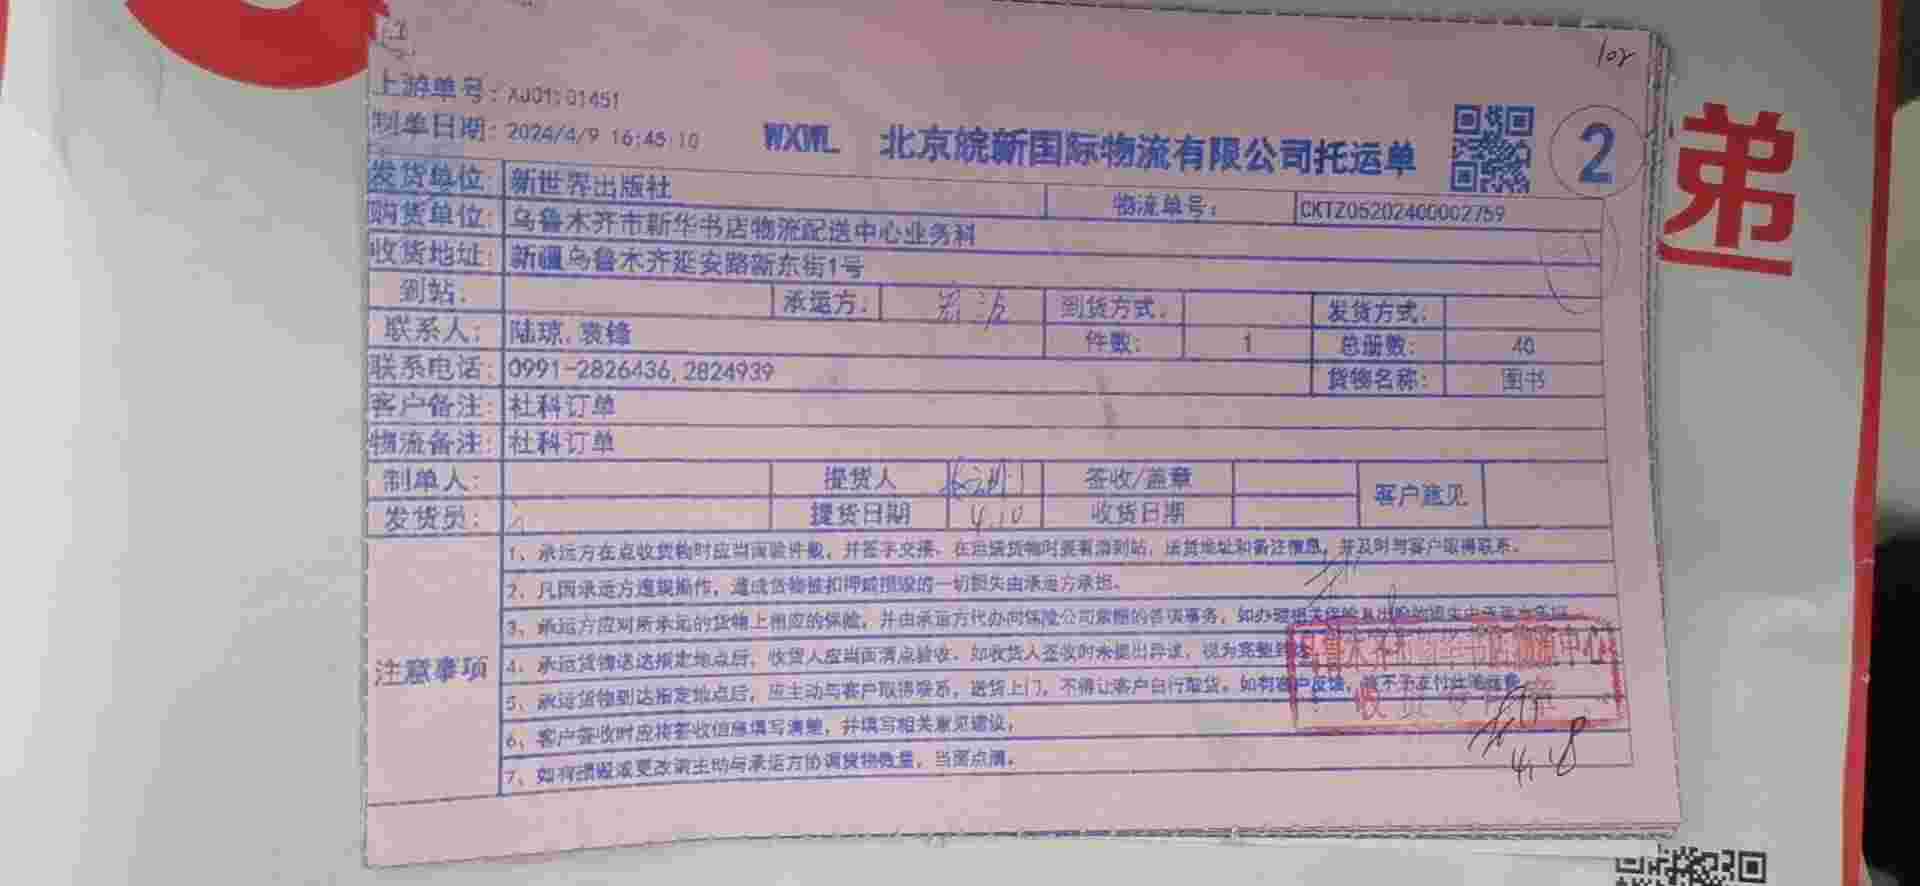 102
上游单号: XJ01101451
制单日期: 2024/4/9 16:45:10
WXWL 北京皖新国际物流有限公司托运单
2
递
发货单位: 新世界出版社 物流单号: CKTZ05202400002759
购货单位: 乌鲁木齐市新华书店物流配送中心业务科
收货地址: 新疆乌鲁木齐延安路新东街1号
到站: 承运方: 到货方式: 发货方式:
联系人: 陆琼,袁锋 件数: 1 总册数: 40
联系电话: 0991-2826436,2824939 货物名称: 图书
客户备注: 社科订单
物流备注: 社科订单
制单人: 提货人 签收/盖章 客户意见
发货员: 提货日期 4.10 收货日期
注意事项
1、承运方在点收货物时应当面验件数，并签字交接。在运送货物时要看清到站，送货地址和备注信息，并及时与客户取得联系。
2、凡因承运方违规操作，造成货物被扣押或损毁的一切损失由承运方承担。
3、承运方应对所承运的货物上相应的保险，并由承运方代办向保险公司索赔的各项事务，如办理相关保险
4、承运货物送达指定地点后，收货人应当面清点验收。如收货人签收时未提出异议，视为完整
5、承运货物到达指定地点后，应主动与客户取得联系，送货上门，不得让客户自行取货。如有客户反馈，
6、客户签收时应将签收信息填写清楚，并填写相关意见建议。
7、如有损毁或更改请主动与承运方协调货物数量，当面点清。
4.18